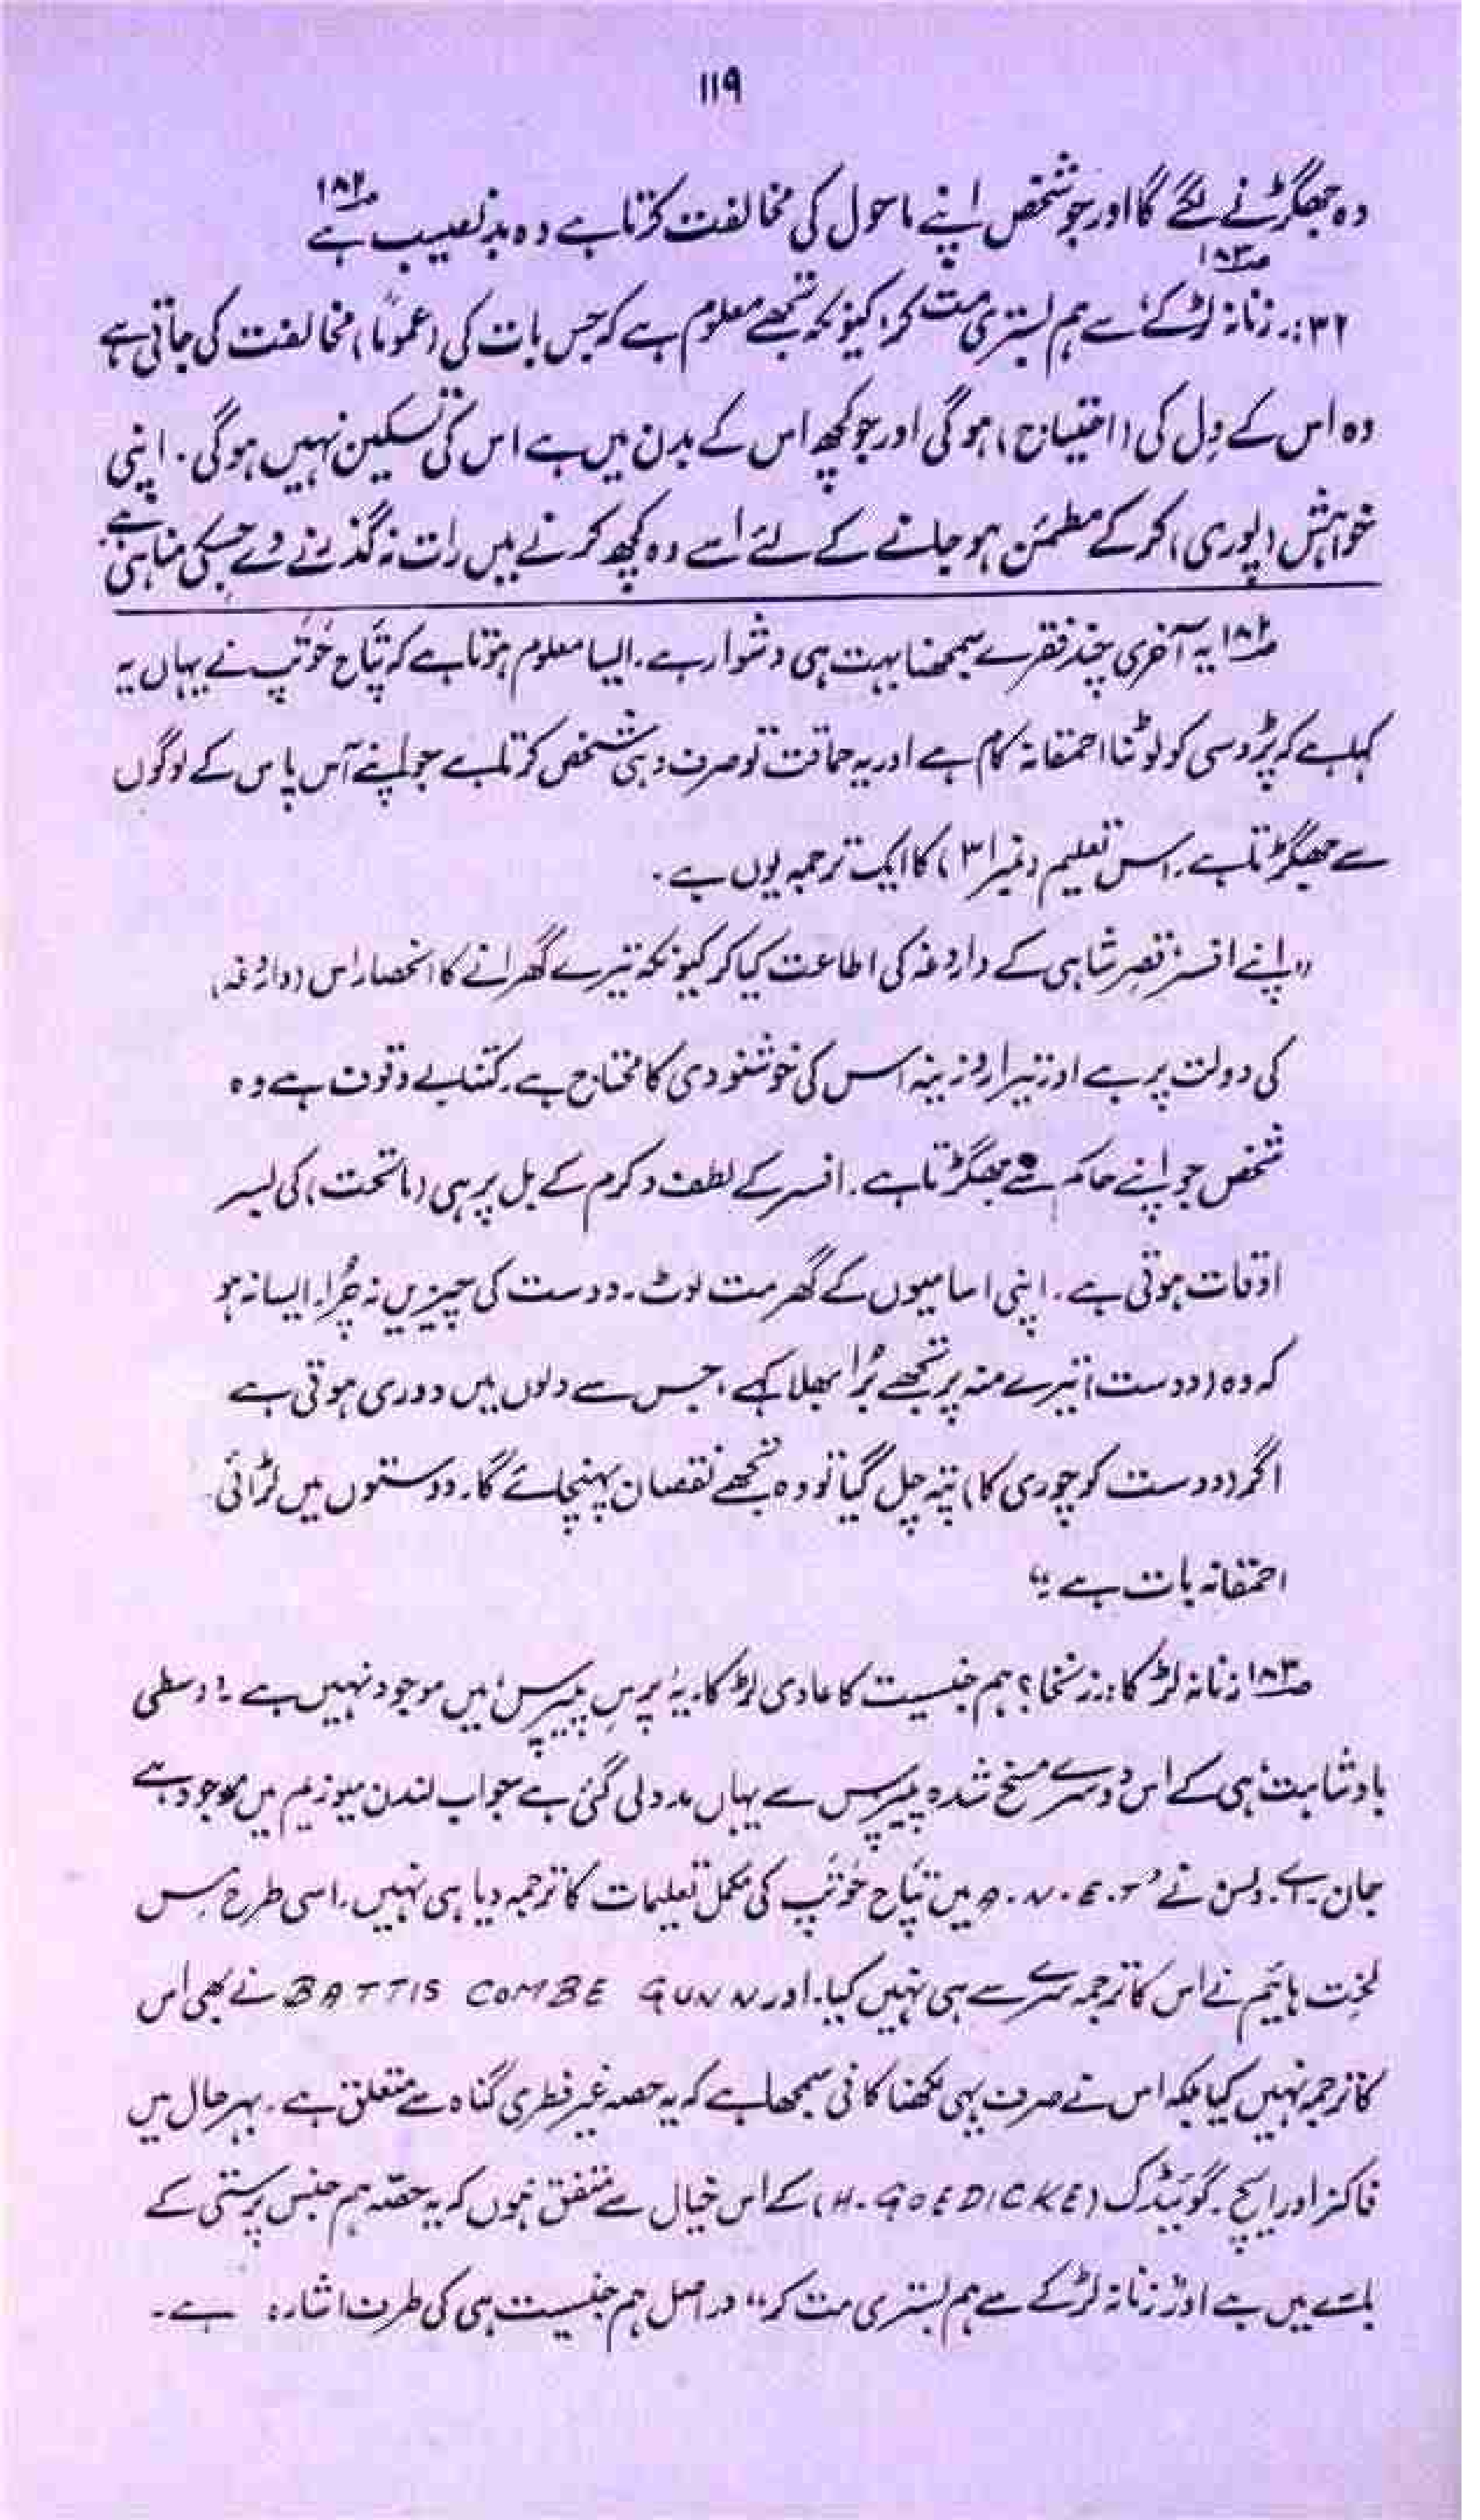 ۱۱۹
وہ جھگڑنے لگے گا اور جو شخص اپنے ماحول کی مخالفت کرتا ہے وہ بدنصیب ہے ۱۸۲ؔ
۳۲:۔ زنانہ لڑکے ۱۸۳ؔ سے ہم بستری مت کر؛ کیونکہ تجھے معلوم ہے کہ جس بات کی (عموماً) مخالفت کی جاتی ہے
وہ اس کے دِل کی (احتیاج) ہوگی اور جو کچھ اس کے بدن میں ہے اس کی تسکین نہیں ہوگی۔ اپنی
خواہش (پوری) کر کے مطمئن ہو جانے کے لئے اسے وہ کچھ کرنے میں رات نہ گذرنے دے جسکی مناہی ہے
۱۸۲ؔ یہ آخری چند فقرے سمجھنا بہت ہی دشوار ہے۔ ایسا معلوم ہوتا ہے کہ پتاح حُوتپ نے یہاں یہ
کہا ہے کہ پڑوسی کو لوٹنا احمقانہ کام ہے اور یہ حماقت تو صرف وہی شخص کرتا ہے جو اپنے آس پاس کے لوگوں
سے جھگڑتا ہے۔ اس تعلیم (نمبر ۳۱) کا ایک ترجمہ یوں ہے۔
"اپنے افسر، قصرِ شاہی کے داروغہ کی اطاعت کیا کر کیونکہ تیرے گھرانے کا انحصار اس (داروغہ)
کی دولت پر ہے اور تیرا روزینہ اس کی خوشنودی کا محتاج ہے۔ کتنا بے وقوف ہے وہ
شخص جو اپنے حاکم سے جھگڑتا ہے۔ افسر کے لطف و کرم کے بل پر ہی (ماتحت) کی بسر
اوقات ہوتی ہے۔ اپنی اسامیوں کے گھر مت لوٹ۔ دوست کی چیزیں نہ چُرا۔ ایسا نہ ہو
کہ وہ (دوست) تیرے منہ پر تجھے بُرا بھلا کہے، جس سے دلوں میں دوری ہوتی ہے
اگر (دوست کو چوری کا) پتہ چل گیا تو وہ تجھے نقصان پہنچائے گا۔ دوستوں میں لڑائی
احمقانہ بات ہے۔"
۱۸۳ؔ زنانہ لڑکا:۔ زنخا؟ ہم جنسیت کا عادی لڑکا۔ یہ 'پرِس پیپرس' میں موجود نہیں ہے۔ 'وسطی
بادشاہت' ہی کے اس دوسرے مسخ شدہ پیپرس سے یہاں مدد لی گئی ہے جو اب لندن میوزیم میں موجود ہے
جان۔ اے۔ ولسن نے 'A.N.E.T میں پتاح حُوتپ کی مکمل تعلیمات کا ترجمہ دیا ہی نہیں۔ اسی طرح مِس
لخت ہائیم نے اس کا ترجمہ سرے سے ہی نہیں کیا۔ اور BATTIS COMBE GUNN نے بھی اس
کا ترجمہ نہیں کیا بلکہ اس نے صرف یہی لکھنا کافی سمجھا ہے کہ یہ حصہ غیر فطری گناہ سے متعلق ہے۔ بہرحال میں
فاکنر اور ایچ۔ گوئیڈک (H. GOEDICKE) کے اس خیال سے متفق ہوں کہ یہ حصّہ ہم جنس پرستی کے
بارے میں ہے اور "زنانہ لڑکے سے ہم بستری مت کر" دراصل ہم جنسیت ہی کی طرف اشارہ ہے۔